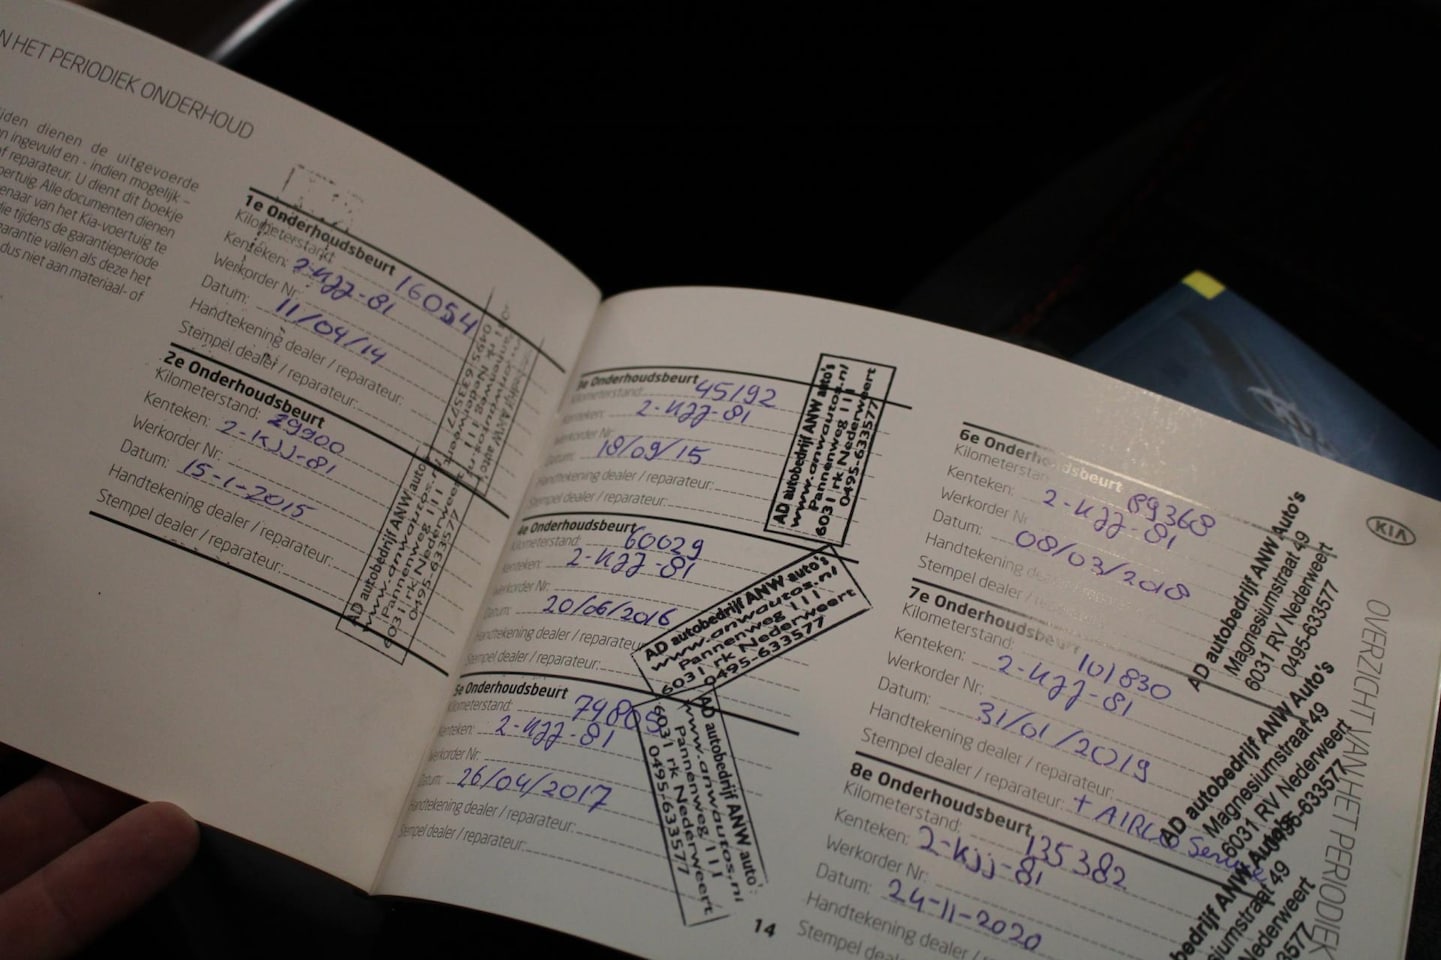 N HET PERIODIEK ONDERHOUD
jden dienen de uitgevoerde
n ingevuld en - indien mogelijk -
of reparateur. U dient dit boekje
pertuig. Alle documenten dienen
enaar van het Kia-voertuig te
die tijdens de garantieperiode
garantie vallen als deze het
dus niet aan materiaal- of
1e Onderhoudsbeurt
Kilometerstand: 16054
Kenteken: 2-KJJ-81
Werkorder Nr:
Datum: 11/04/14
Handtekening dealer / reparateur:
Stempel dealer / reparateur:
2e Onderhoudsbeurt
Kilometerstand: 29900
Kenteken: 2-KJJ-81
Werkorder Nr:
Datum: 15-1-2015
Handtekening dealer / reparateur:
Stempel dealer / reparateur:
AD autobedrijf ANW auto
www.anwautos.n
Pannenweg 111
6031 rk Nederweert
0495-633577
e Onderhoudsbeurt
Kilometerstand: 45192
Kenteken: 2-KJJ-81
Werkorder Nr:
Datum: 18/09/15
Handtekening dealer / reparateur:
Stempel dealer / reparateur:
AD autobedrijf ANW auto's
www.anwautos.nl
Pannenweg 111
6031 rk Nederweert
0495-633577
4e Onderhoudsbeurt
Kilometerstand: 60029
Kenteken: 2-KJJ-81
Werkorder Nr:
Datum: 20/06/2016
Handtekening dealer / reparateur
Stempel dealer / reparateur:
AD autobedrijf ANW auto's
www.anwautos.nl
Pannenweg 111
6031 rk Nederweert
0495-633577
5e Onderhoudsbeurt
Kilometerstand: 74805
Kenteken: 2-KJJ-81
Werkorder Nr:
Datum: 26/04/2017
Handtekening dealer / reparateur:
Stempel dealer / reparateur:
AD autobedrijf ANW auto'
www.anwautos.nl
Pannenweg 111
6031 rk Nederweert
0495-633577
14
6e Onderhoudsbeurt
Kilometerstan 89368
Kenteken: 2-KJJ-81
Werkorder Nr
Datum: 08/03/2018
Handtekening dealer / reparateur:
Stempel dealer /
AD autobedrijf ANW Auto's
Magnesiumstraat 49
6031 RV Nederweert
0495-633577
7e Onderhoudsbeurt
Kilometerstand: 101830
Kenteken: 2-KJJ-81
Werkorder Nr:
Datum: 31/01/2019
Handtekening dealer / reparateur:
Stempel dealer / reparateur: + AIRCO Service
AD autobedrijf ANW Auto's
Magnesiumstraat 49
6031 RV Nederweert
0495-633577
8e Onderhoudsbeurt
Kilometerstand: 135382
Kenteken: 2-KJJ-81
Werkorder Nr:
Datum: 24-11-2020
Handtekening dealer / reparateur
Stempel dealer /
bedrijf ANW Auto's
siumstraat 49
Nederweert
3577
KIA
OVERZICHT VAN HET PERIODIEK